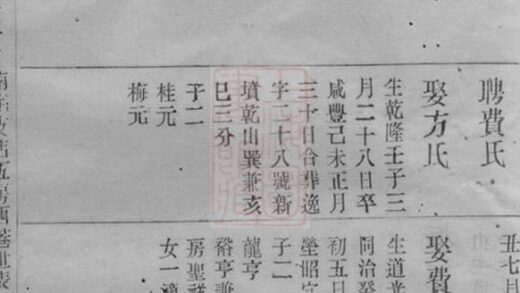 聘費氏
娶方氏
生乾隆壬子三
月二十八日卒
咸豐己未正月
三十日合葬逸
字二十八號新
墳乾山巽兼亥
巳三分
子二
桂元
梅元
丑七月
娶費
生道光
同治
初五日
塋昭字
子二
龍亨
裕亨兼
房聖祥
女一適